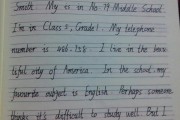 Smith. My is in No.79 Middle School.
I'm in Class 5, Grade 1. My telephone
number is I live in the beau-
tiful city of America. In the school, my
favourite subject is English. Perhaps someone
thinks it's difficult to study well. But I